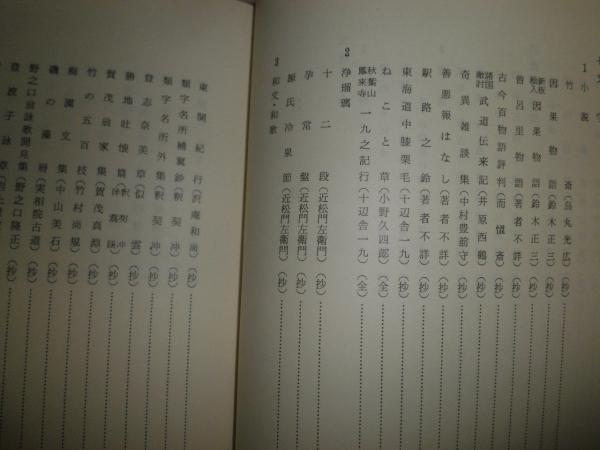 1 小説
竹 斎（烏丸光広）（抄）
因果物語（鈴木正三）（抄）
新板絵入 因果物語（鈴木正三）（抄）
曾呂里物語（著者不詳）（抄）
古今百物語評判（而慍斎）（抄）
諸国敵討 武道伝来記（井原西鶴）（抄）
奇異雑談集（中村豊前守）（抄）
善悪報はなし（著者不詳）（抄）
駅路之鈴（著者不詳）（抄）
東海道中膝栗毛（十辺舎一九）（抄）
ねこと草（小野久四郎）（全）
秋葉山鳳来寺 一九之記行（十辺舎一九）（全）
2 浄瑠璃
十二段（近松門左衛門）（抄）
孕常盤（近松門左衛門）（抄）
源氏冷泉節（近松門左衛門）（抄）
3 和文・和歌
東関紀行（沢庵和尚）（抄）
類字名所補翼鈔（釈契沖）（抄）
類字名所外集（釈契沖）（抄）
登志奈美草（似雲）（抄）
勝地吐懐篇（釈契沖 伴真蹊）（抄）
賀茂翁家集（賀茂真淵）（抄）
竹の五百枝（竹村尚規）（抄）
梅園文集（中山美石）（抄）
磯の藻屑（実相院古道）（抄）
野之口翁詠歌聞見集（野之口隆正）（抄）
登波子詠草